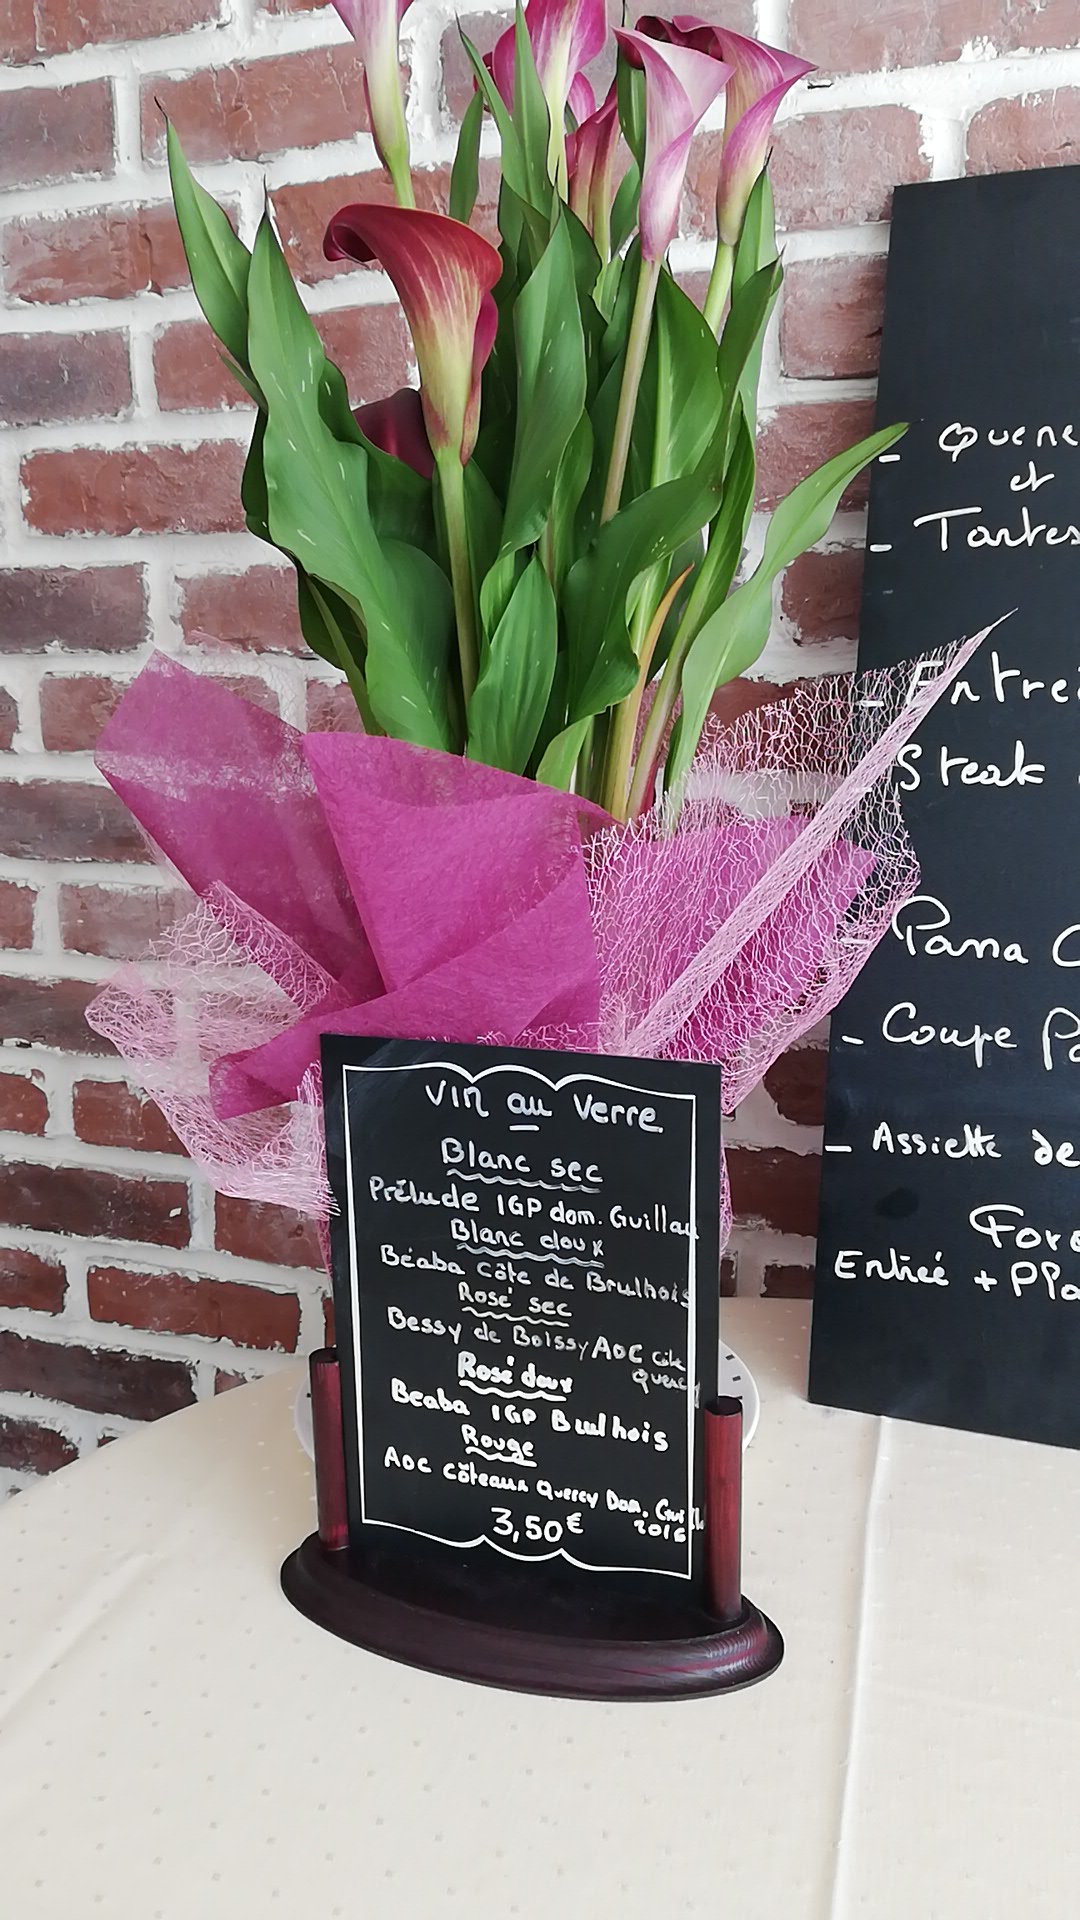 Vin au Verre
Blanc sec
Prélude IGP dom. Guillau
Blanc doux
Béaba Côte de Brulhois
Rosé sec
Bessy de Boissy AOC Côte
Quercy
Rosé doux
Beaba IGP Brulhois
Rouge
AOC Côteaux Quercy Dom.
2016
3,50€
- Quene
et
- Tartes
- Entre
Steak
- Panna C
- Coupe
- Assiette de
For
Entreé + Pla